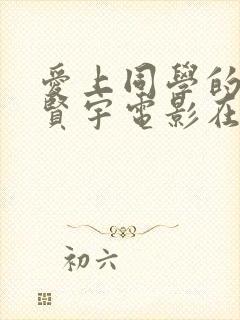 愛上同學的
賢宇電影在
初六